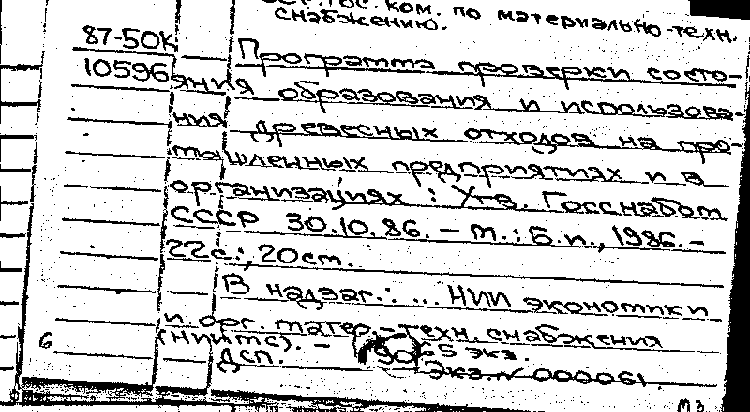 гос. ком. по материально-техн.
снабжению.
87-50К
10596
Программа проверки состо-
яния образования и использова-
ния древесных отходов на про-
мышленных предприятиях и в
организациях : Утв. Госснабом
СССР 30.10.86. - М. : Б.и., 1986. -
22с.; 20см.
В надзаг.: ... НИИ экономики
и орг. матер.-техн. снабжения
(НИИМС). - 65 экз.
ДСП. 90
Экз. № 000061.
б
МЗ